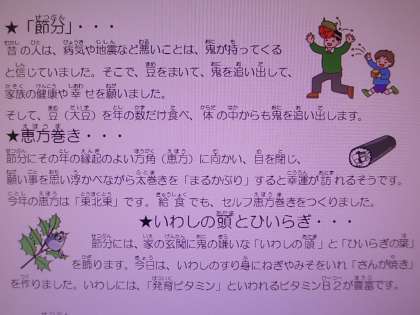 ★「節分」・・・
昔の人は、病気や地震など悪いことは、鬼が持ってくる
と信じていました。そこで、豆をまいて、鬼を追い出して、
家族の健康や幸せを願いました。
そして、豆（大豆）を年の数だけ食べ、体の中からも鬼を追い出します。
★恵方巻き・・・
節分にその年の縁起のよい方角（恵方）に向かい、目を閉じ、
願い事を思い浮かべながら太巻きを「まるかぶり」すると幸運が訪れるそうです。
今年の恵方は「東北東」です。給食でも、セルフ恵方巻きをつくりました。
★いわしの頭とひいらぎ・・・
節分には、家の玄関に鬼の嫌いな「いわしの頭」と「ひいらぎの葉」
を飾ります。今日は、いわしのすり身にねぎやみそをいれ「さんが焼き」
を作りました。いわしには、「発育ビタミン」といわれるビタミンＢ２が豊富です。